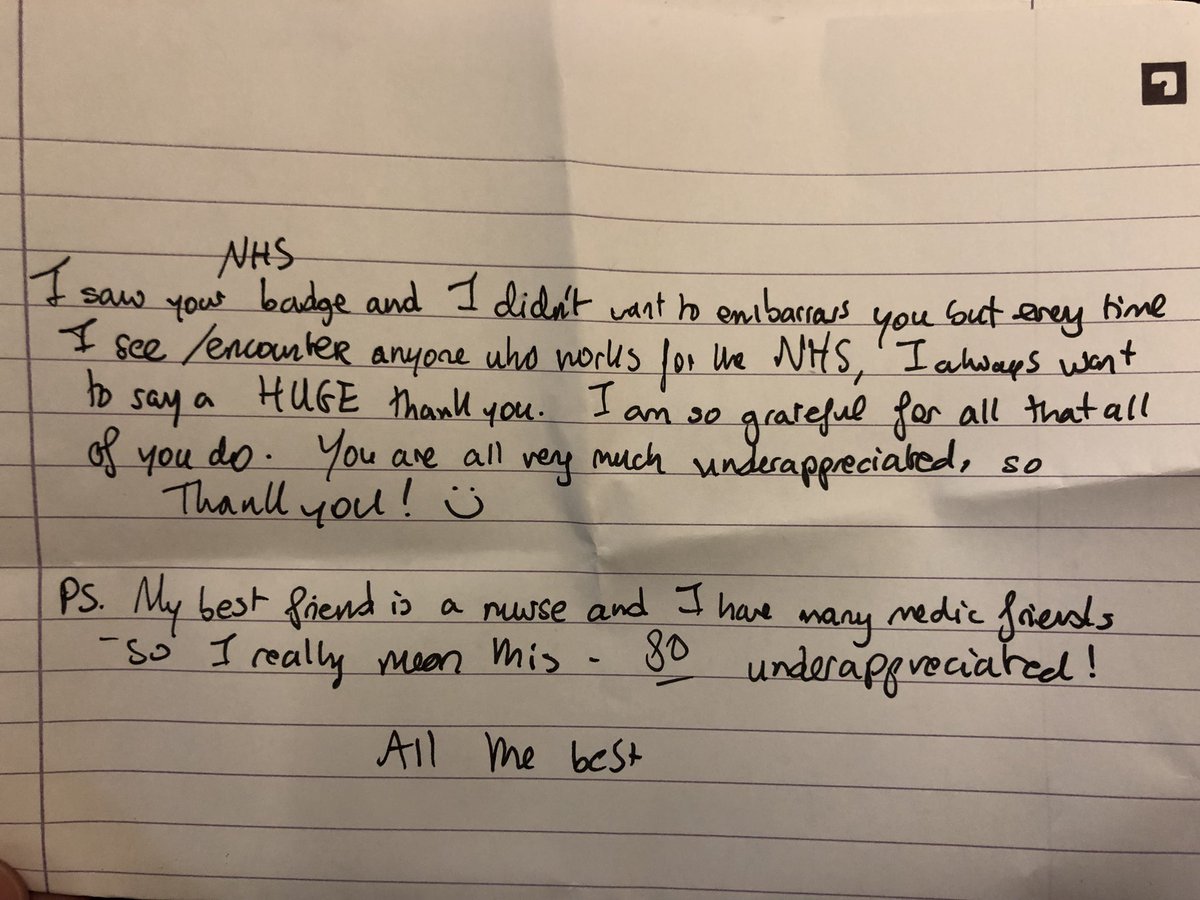 NHS
I saw your badge and I didn't want to embarrass you but every time
I see/encounter anyone who works for the NHS, I always want
to say a HUGE thank you. I am so grateful for all that all
of you do. You are all very much underappreciated, so
Thank you! :)
PS. My best friend is a nurse and I have many medic friends
- so I really mean this - so underappreciated!
All the best